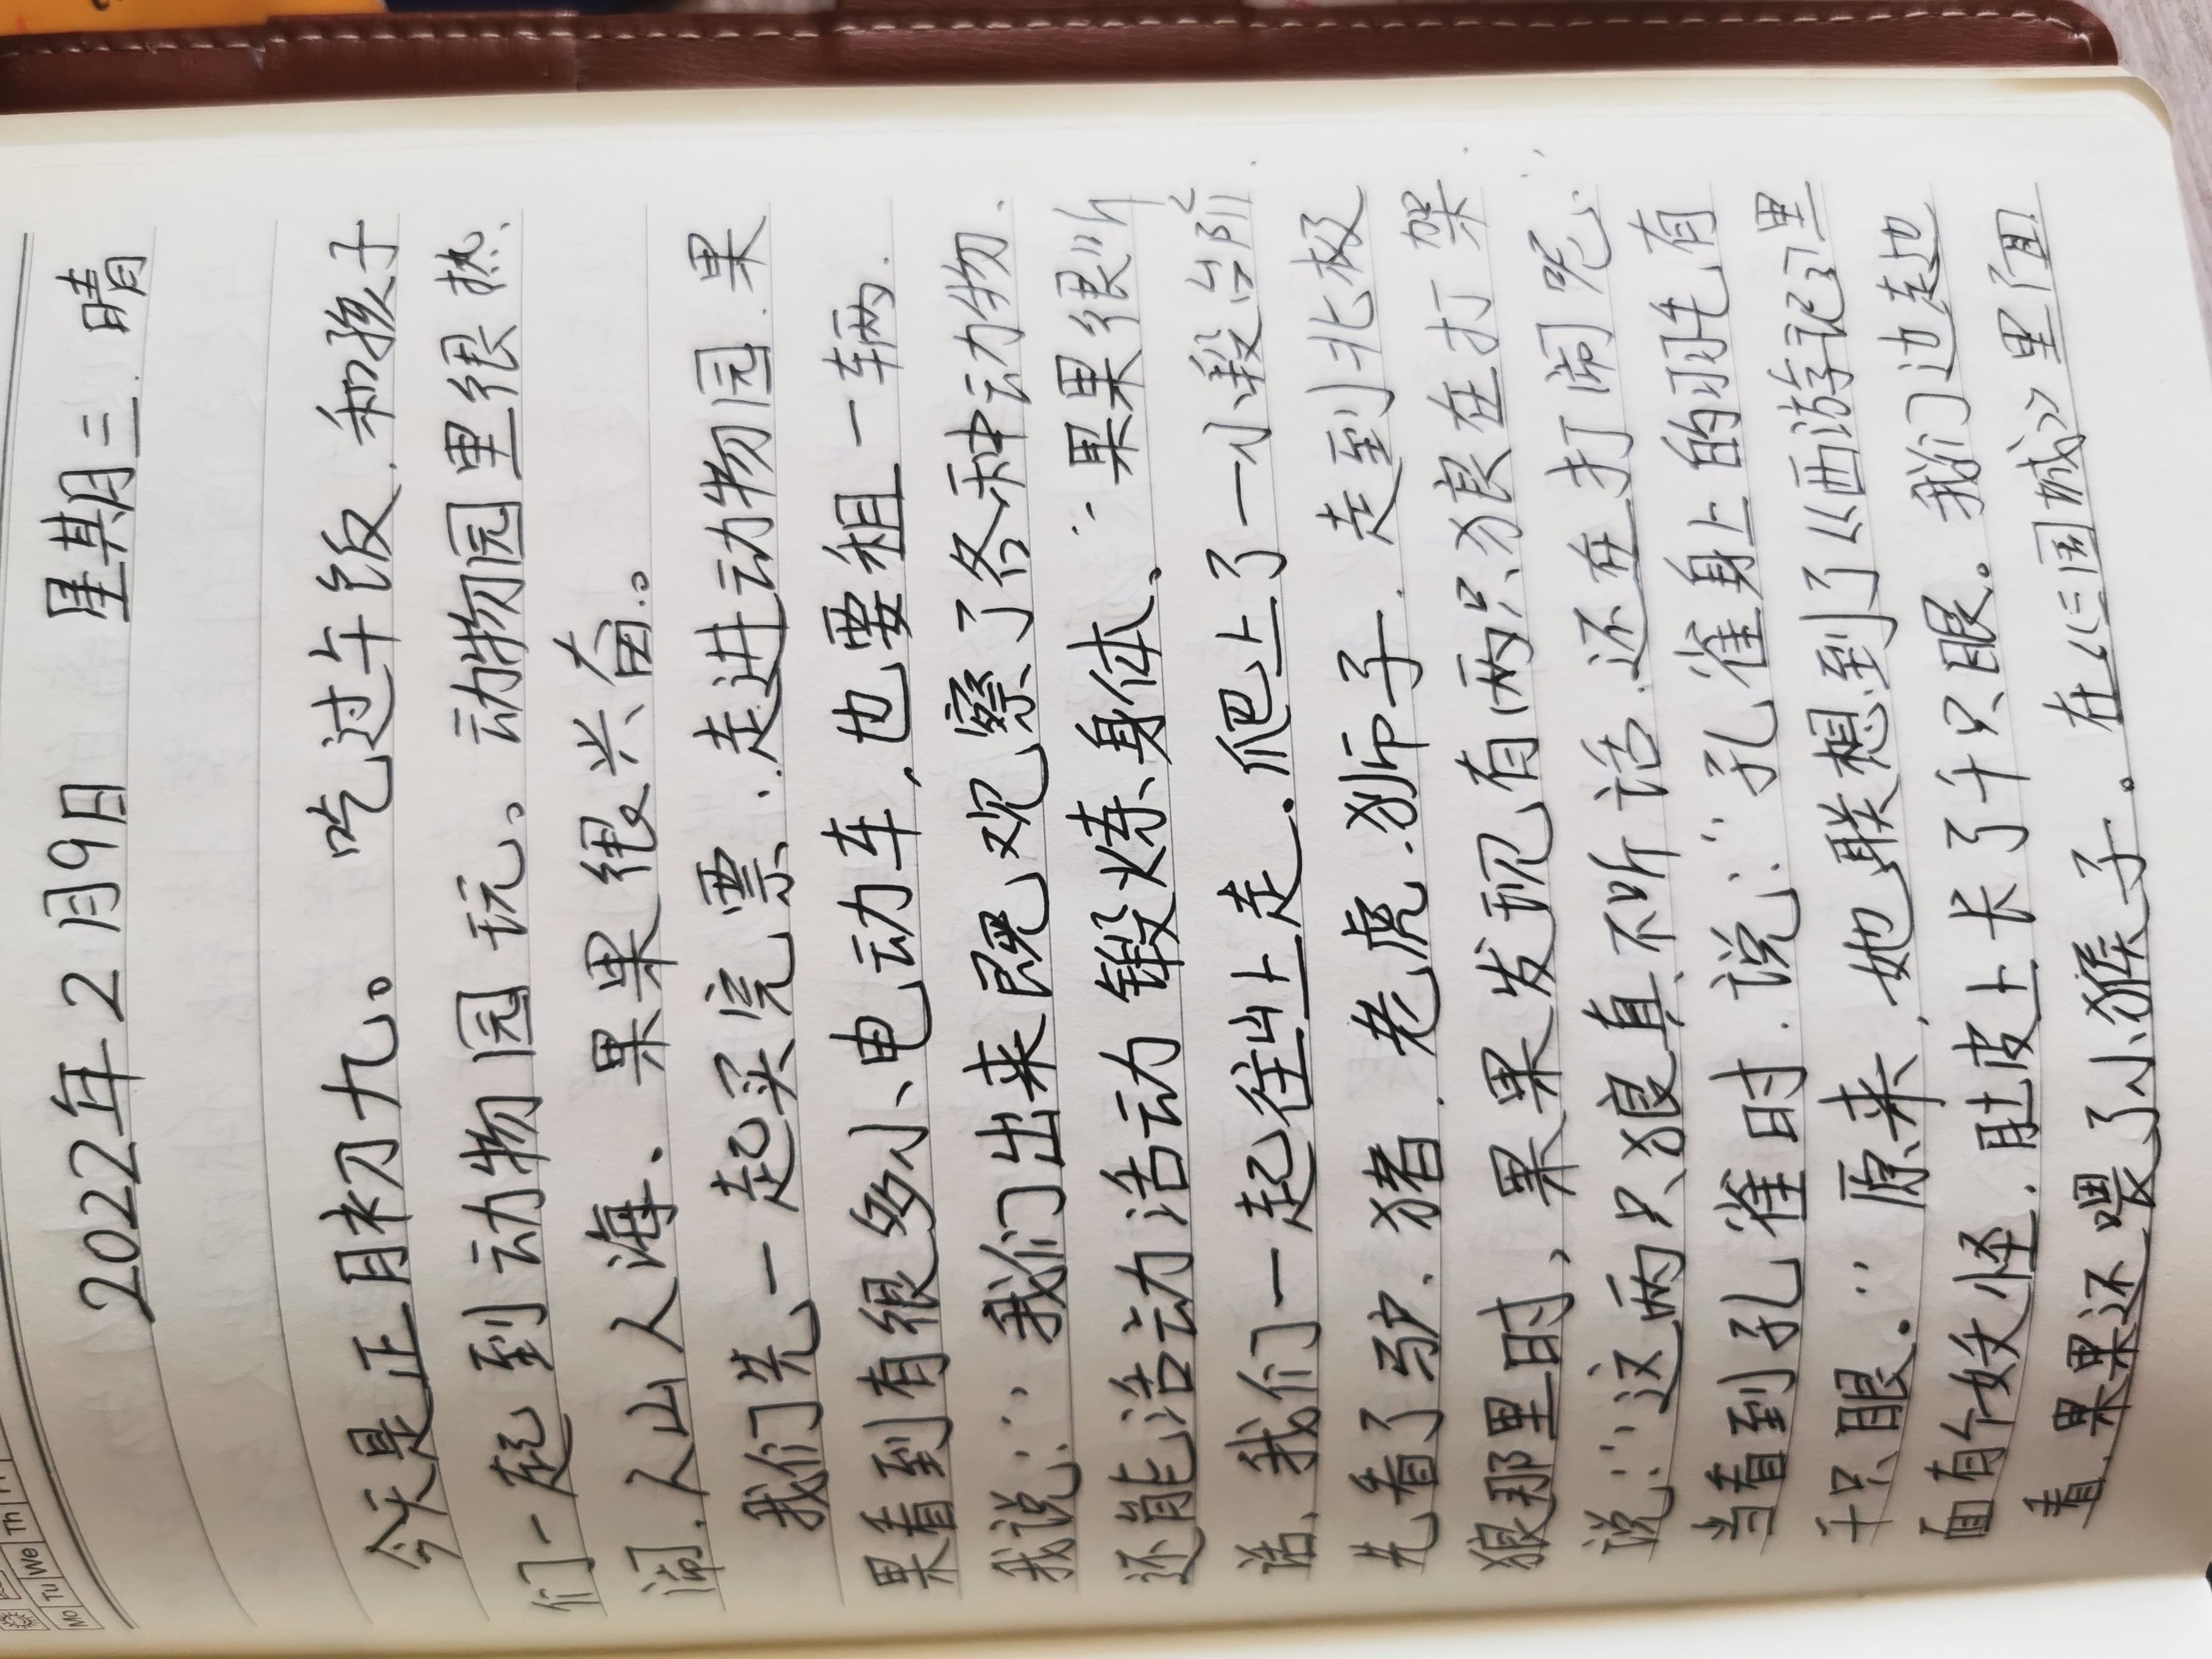 Mo Tu We Th
2022年2月9日 星期三.晴
今天是正月初九。吃过午饭.和孩子
们一起到动物园玩。动物园里很热
闹.人山人海、果果很兴奋。
我们先一起买完票.走进动物园.果
果看到有很多小电动车,也要租一辆.
我说:“我们出来既观察了各种动物.
还能活动活动锻炼身体。”果果很听
话、我们一起往山上走.爬上了一小段台阶.
先看了驴.猪.老虎.狮子.走到北极
狼那里时,果果发现有两只狼在打架.
说:“这两只狼真不听话.还在打闹呢.”
当看到孔雀时.说:“孔雀身上的羽毛有
千只眼。”原来,她联想到了《西游记》里
面有个妖怪.肚皮上长了千只眼。我们边走边
看.果果还喂了小猴子。在《三国城》里面.